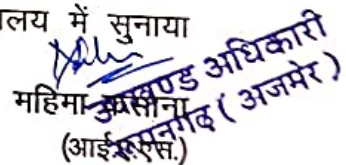 ालय में सुनाया
महिमा
(आई.ए.एस.)
उपखण्ड अधिकारी
रूपनगढ़ (अजमेर)